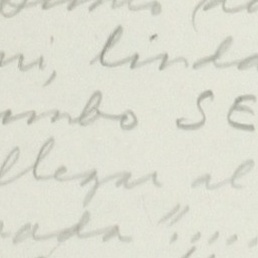 ni, linda
umbo SE
llegar al
rada"....